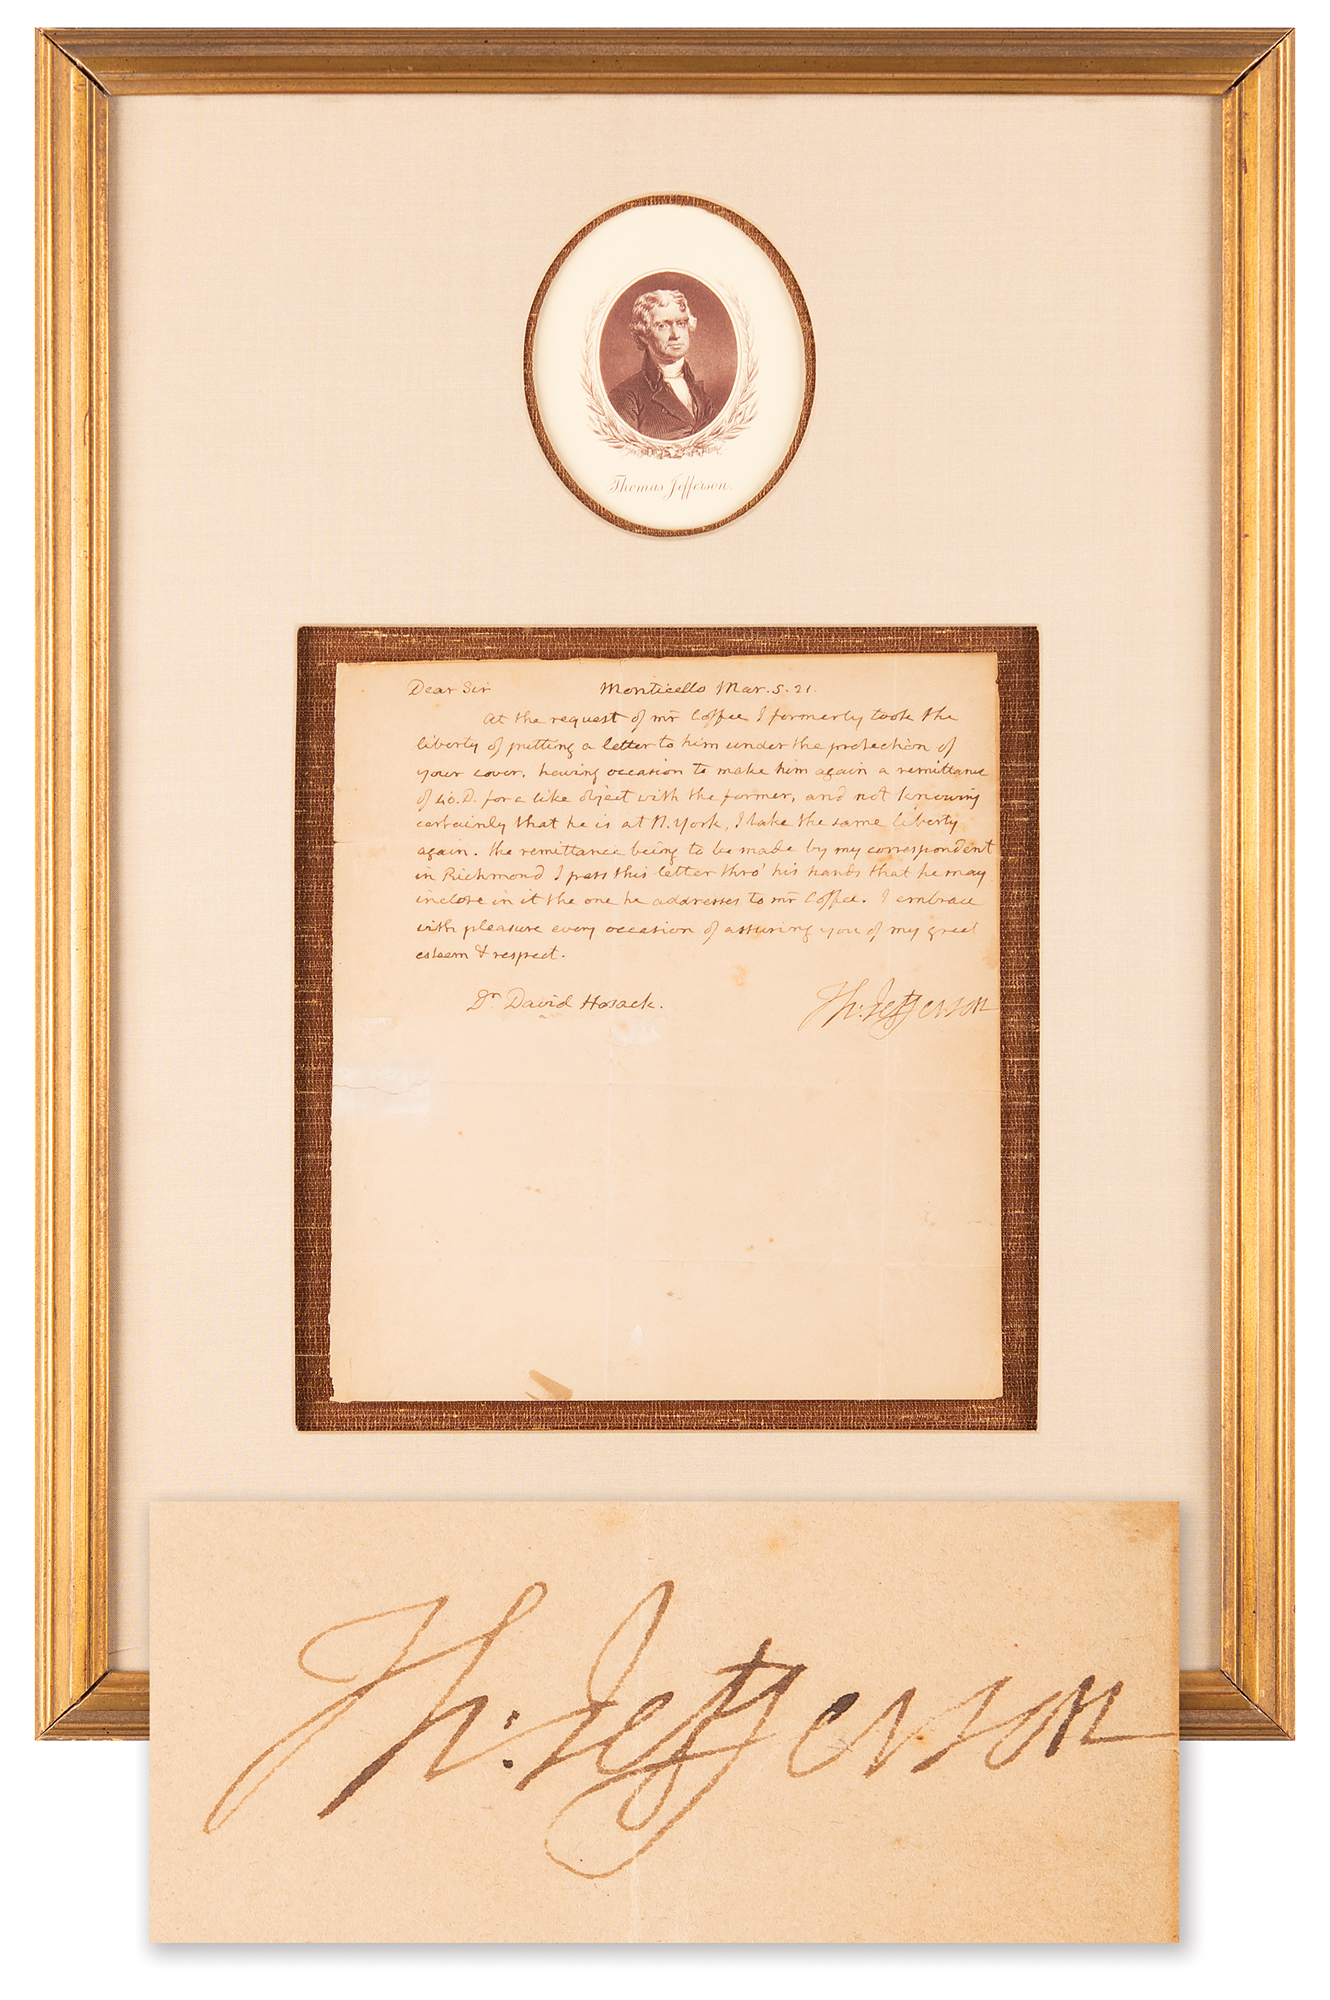 Thomas Jefferson.
Dear Sir Monticello Mar. 5. 21.
At the request of mr Coffee I formerly took the
liberty of putting a letter to him under the protection of
your cover. having occasion to make him again a remittance
of 40. D. for a like object with the former, and not knowing
certainly that he is at N. York, I take the same liberty
again. the remittance being to be made by my correspondent
in Richmond I pass this letter thro' his hands that he may
inclose in it the one he addresses to mr Coffee. I embrace
with pleasure every occasion of assuring you of my great
esteem & respect.
Dr David Hosack. Th: Jefferson
Th: Jefferson